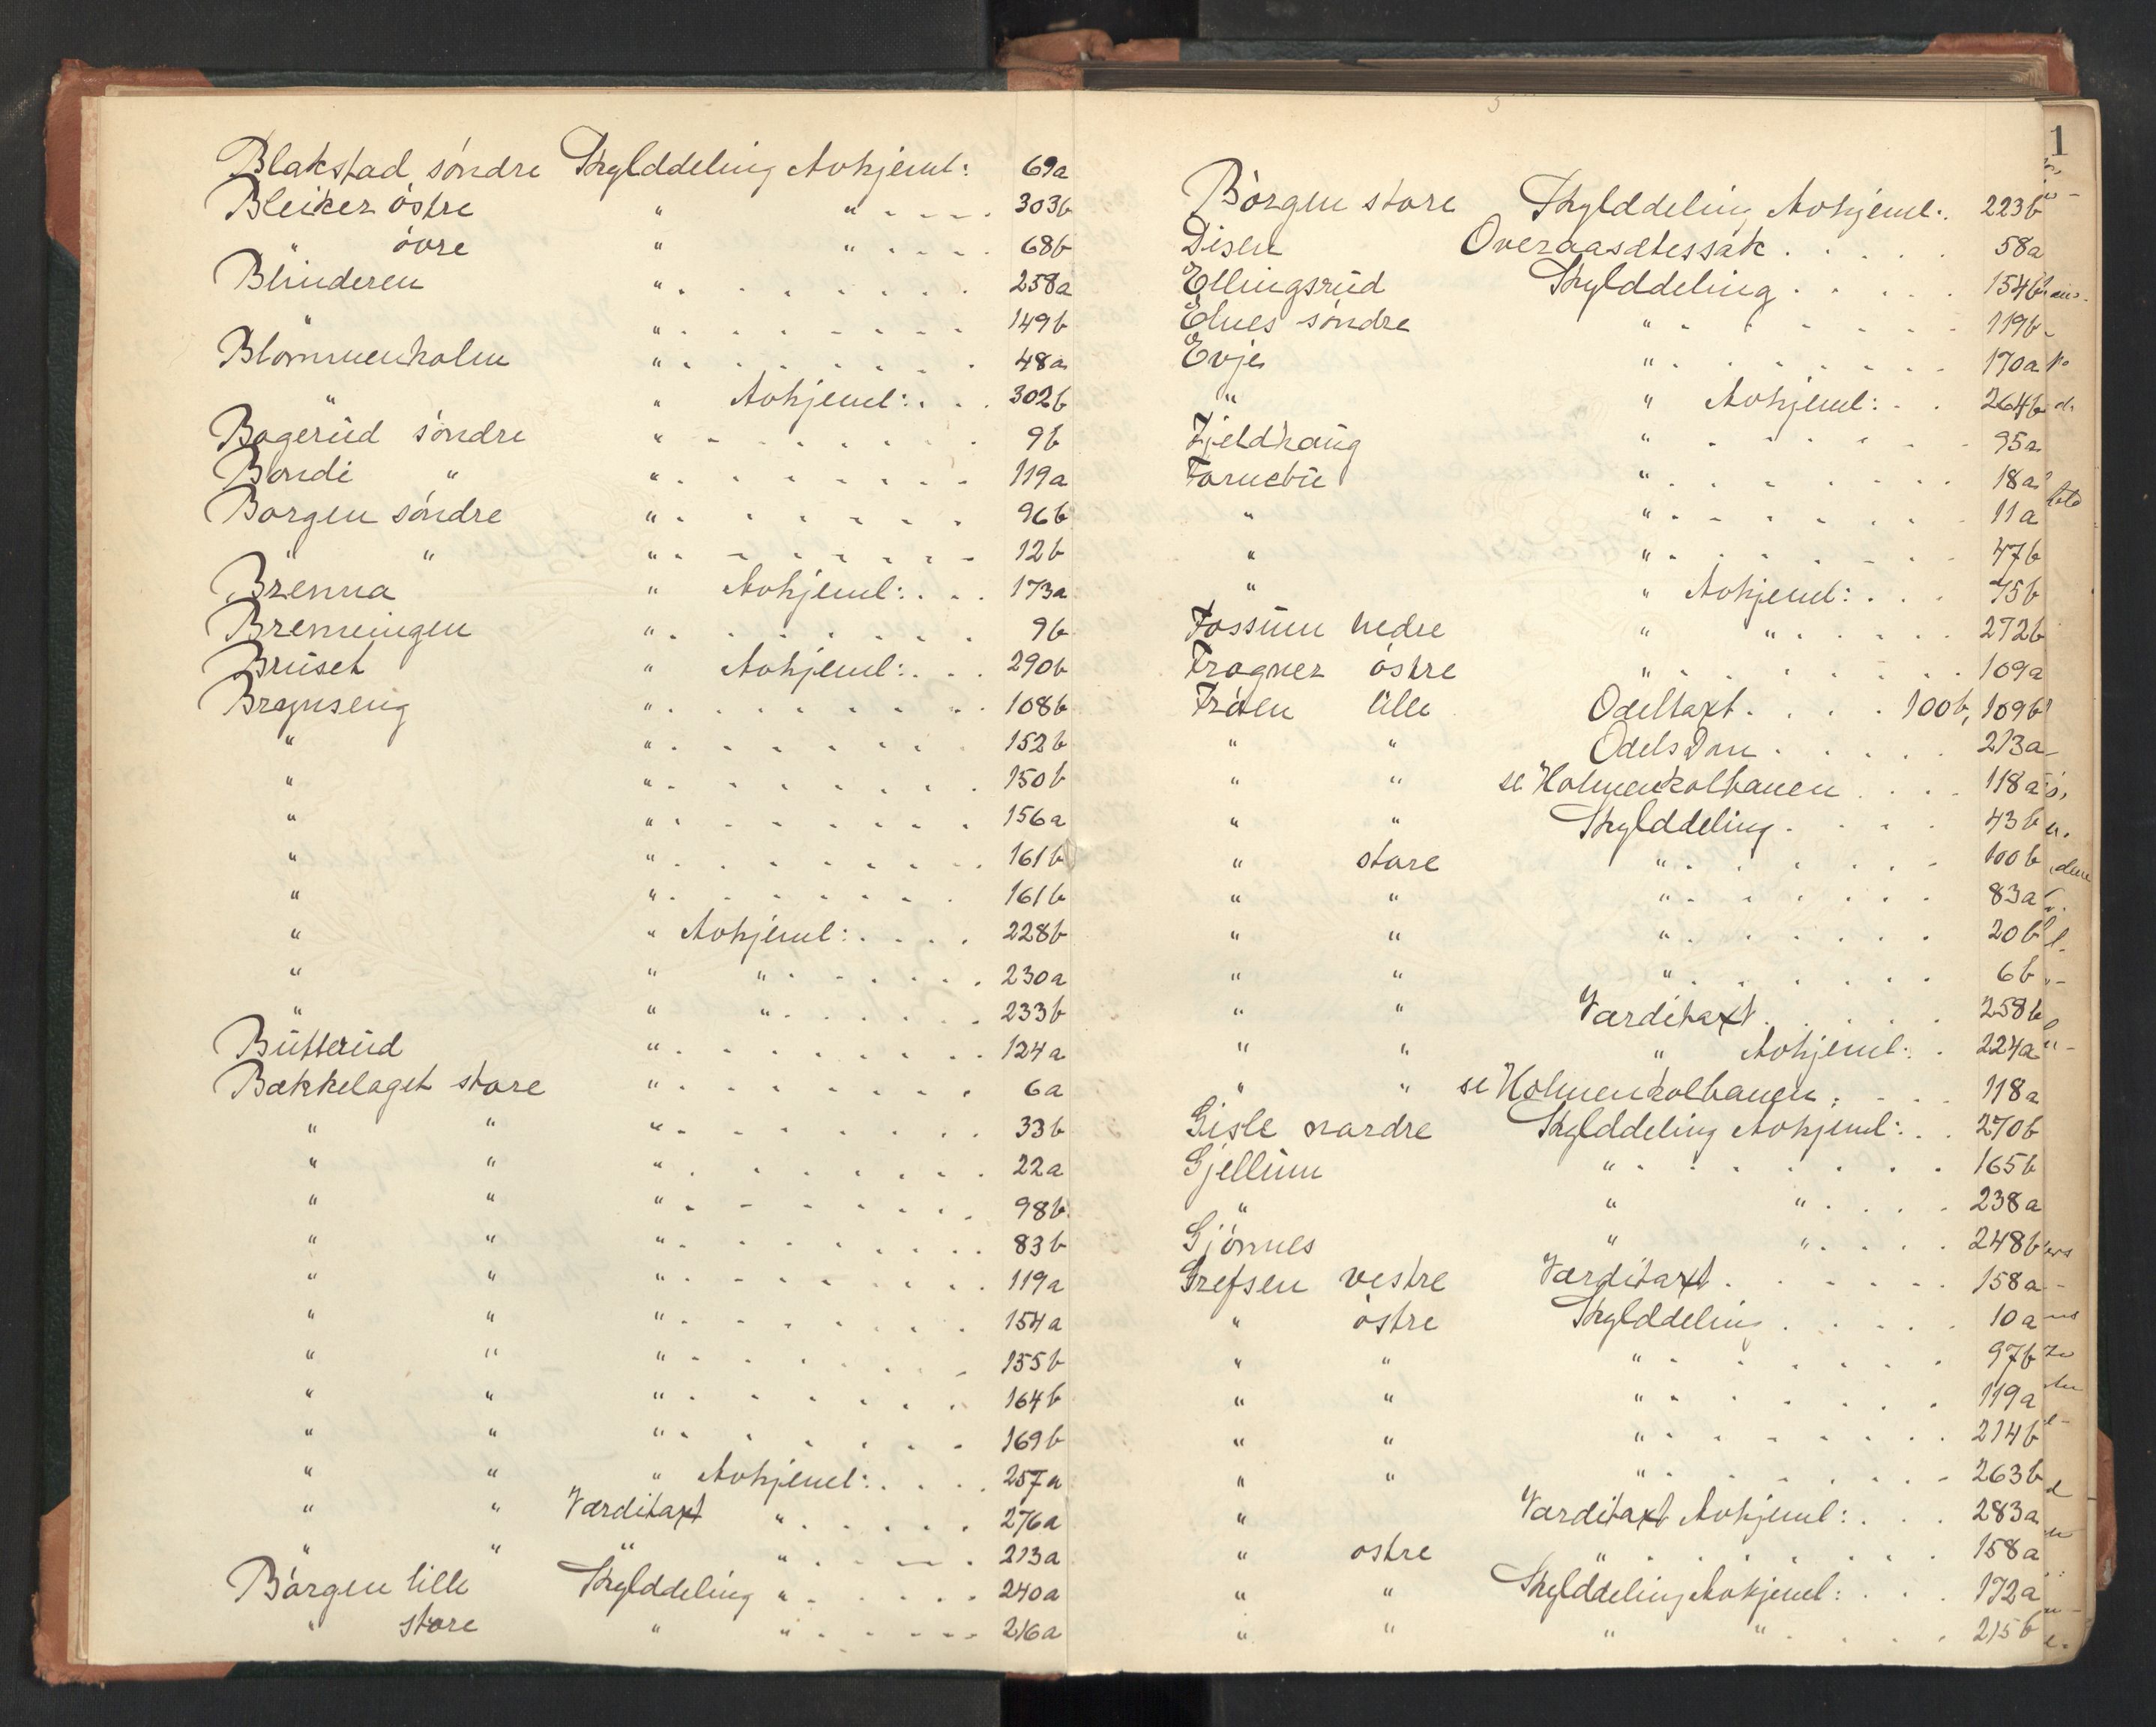 Blakstad söndre Skylddeling Avhjeml: 69a
Bleiker östre " " 303b
" övre " " 68b
Blinderen " 258a
" " 149b
Blommenholm " 48a
" " Avhjeml: 302b
Bogerud söndre " 9b
Bondi " " 119a
Borgen söndre " 96b
" " " 12b
Brenna " Avhjeml: 173a
Brenningen " 9b
Bruset " Avhjeml: 290b
Brynseng " 108b
" " 152b
" " 150b
" " 156a
" " 161b
" " 161b
" " Avhjeml: 228b
" " " 230a
" " " 233b
Butterud " 124a
Bækkelaget store " 6a
" " " 33b
" " " 22a
" " " 98b
" " " 83b
" " " 119a
" " " 154a
" " " 155b
" " " 164b
" " " 169b
" " " Avhjeml: 257a
" " Værditaxt " 276a
" " " " 213a
Börgen lille Skylddeling " 240a
" store " " 216a
1
Börgen store Skylddeling Avhjeml: 223b
Disen Overaasætessak 58a
Ellingsrud Skylddeling 154b
Elnes söndre " 119b
Evje " 170a
" " Avhjeml: 264b
Fjeldhaug " 95a
Fornebu " 18a
" " 11a
" " 47b
" " Avhjeml: 75b
Fossum nedre " " 272b
Frogner östre " 109a
Fröen lille Odeltaxt 100b, 109b
" " Odelsdom 213a
" " se Holmenkolbanen 118a
" " Skylddeling 43b
" store " 100b
" " " 83a
" " " 20b
" " " 6b
" " Værditaxt 258b
" " " Avhjeml: 224a
" " se Holmenkolbanen 118a
Gisle nordre Skylddeling Avhjeml: 270b
Gjellum " 165b
" " " 238a
Gjönnes " " 248b
Grefsen vestre Værditaxt 158a
" östre Skylddeling 10a
" " " 97b
" " " 119a
" " " 214b
" " " 263b
" Værditaxt Avhjeml: 283a
" östre " 158a
" " Skylddeling Avhjeml: 172a
" " " " 215b